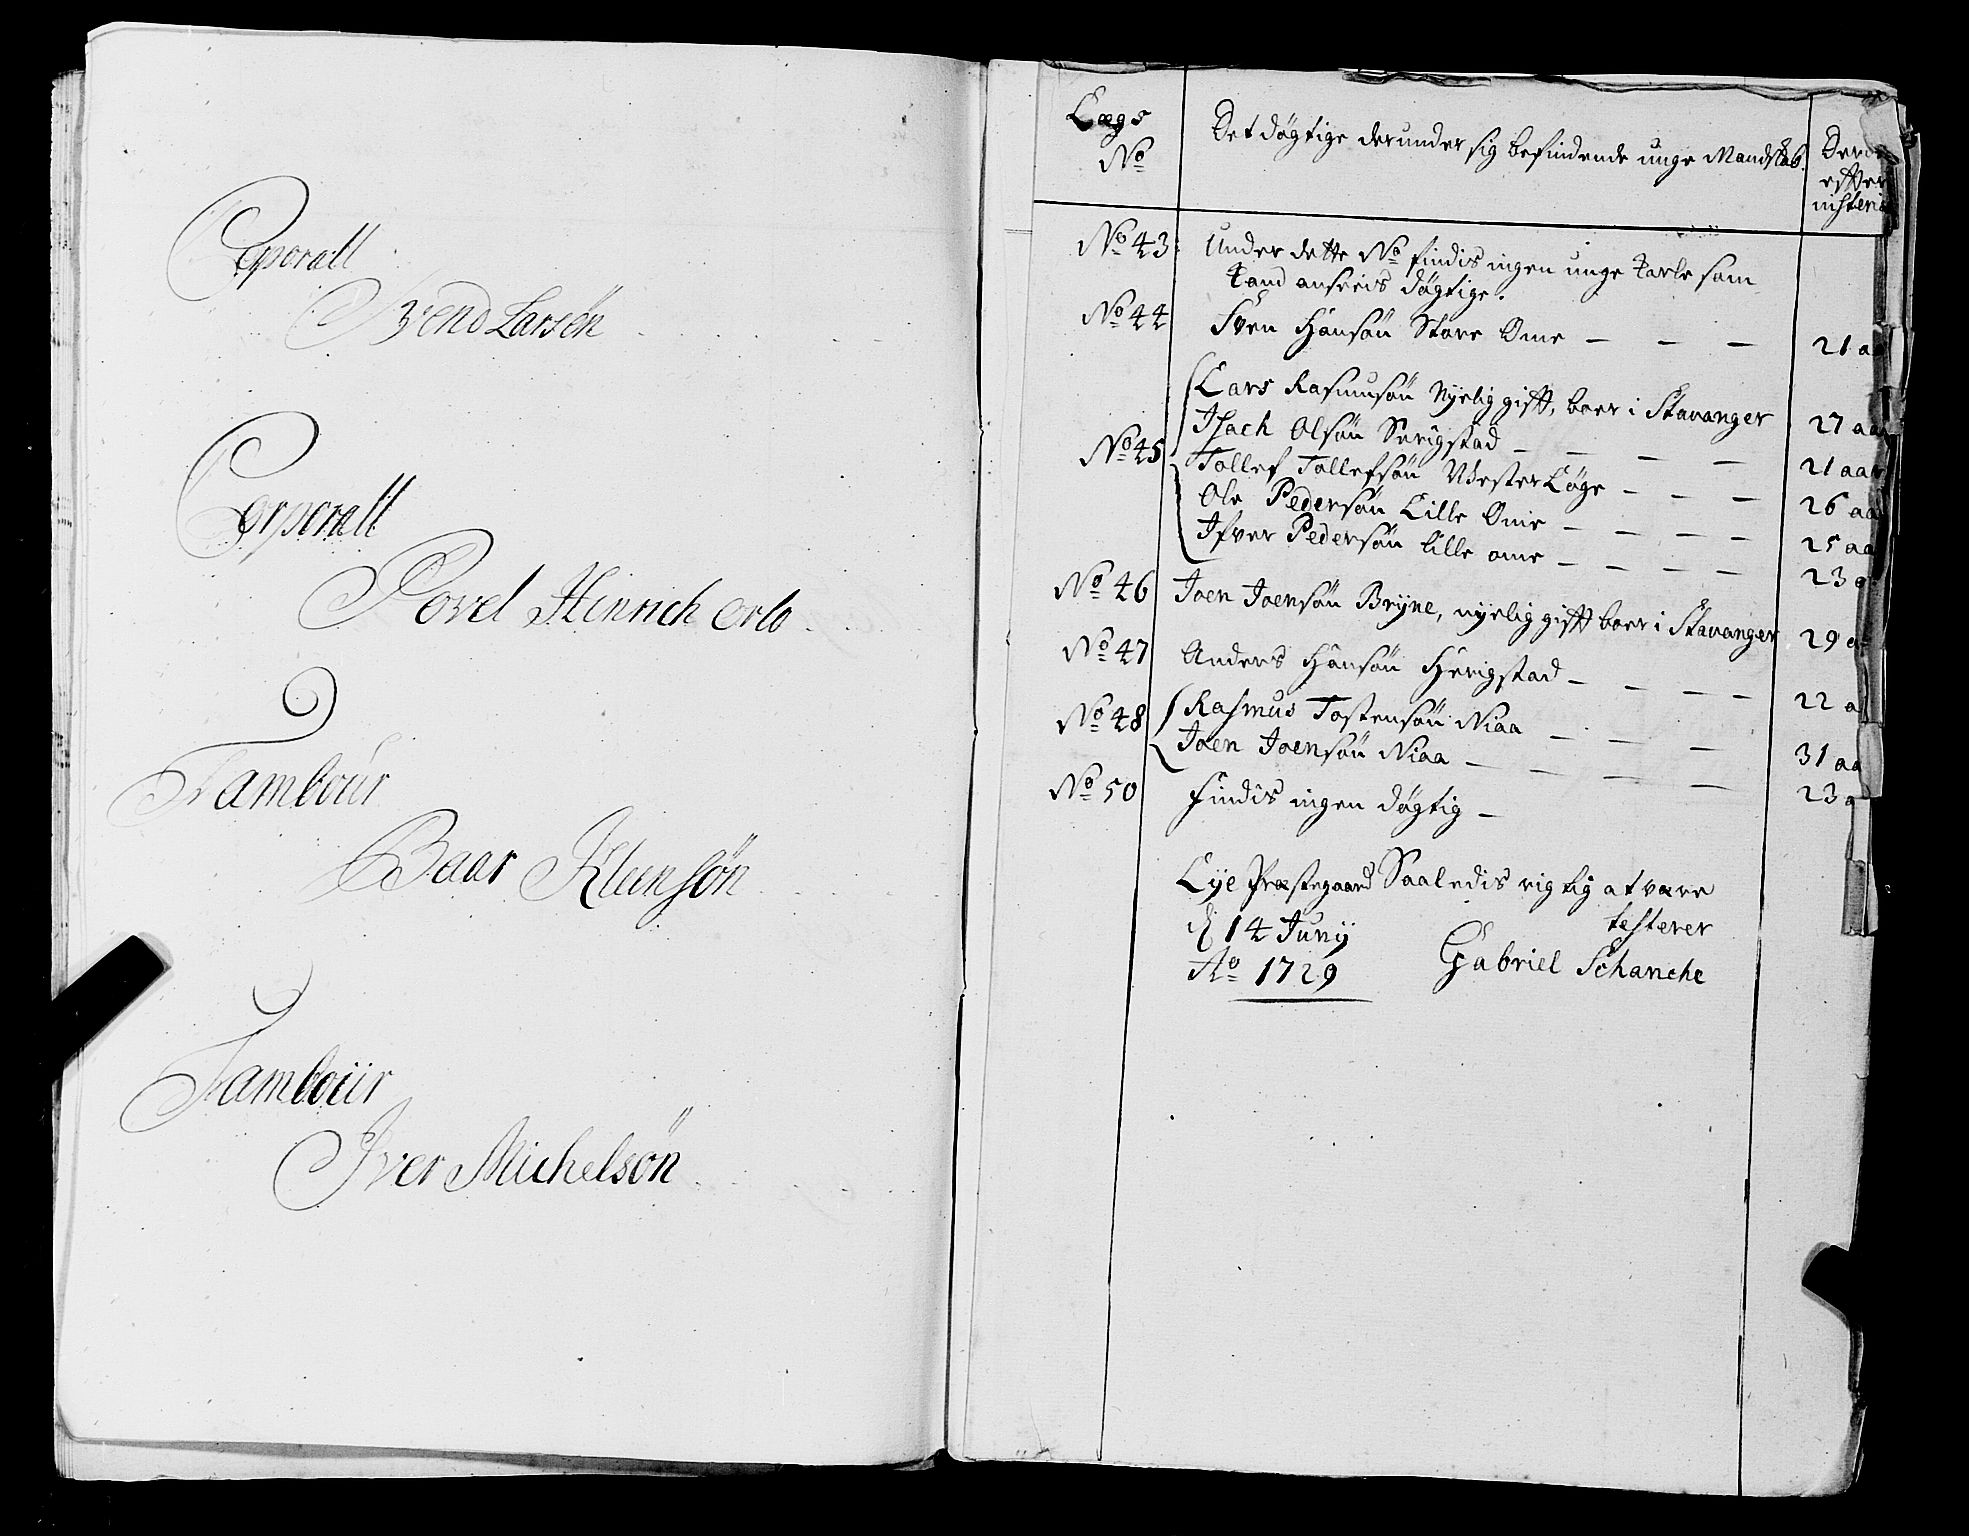 Corporall
Svend Larsön
Corporall
Povel Hinrich Orlo
Tambour
Baar Klemsön
Tambour
Iver Michelsön
Lægs
No
Det døgtige derunder sig befindende unge Mandskab.
Deris
effter
No 43: Under dette No findis ingen unge Karle som
kand ansees døgtige.
No 44 Sven Hansøn Store Ome — — — 21 aa
Lars Rasmusøn Nyelig gifft, boer i Stavanger 27 aa
No 45 Isach Olsøn Serigstad — — — — 21 aar
Tollef Tollefsøn WesterLøge — — — 26 aa
Ole Pedersøn Lille Ome — — — — 25 aa
Ifver Pedersøn Lille ome — — — — 23 a
No 46 Joen Joensøn Bryne, nyelig gifft boer i Stavanger 29 a
No 47 Anders Hansøn Herigstad — — — — 22 a
No 48 Rasmus Tostensøn Niaa — — — 31 aa
Joen Joensøn Niaa — — — — — 23 a
No 50 findis ingen døgtig —
Lye Præstegaard Saaledis rigtig at være
d 14 Junij testerer
Ao 1729 Gabriel Schanche